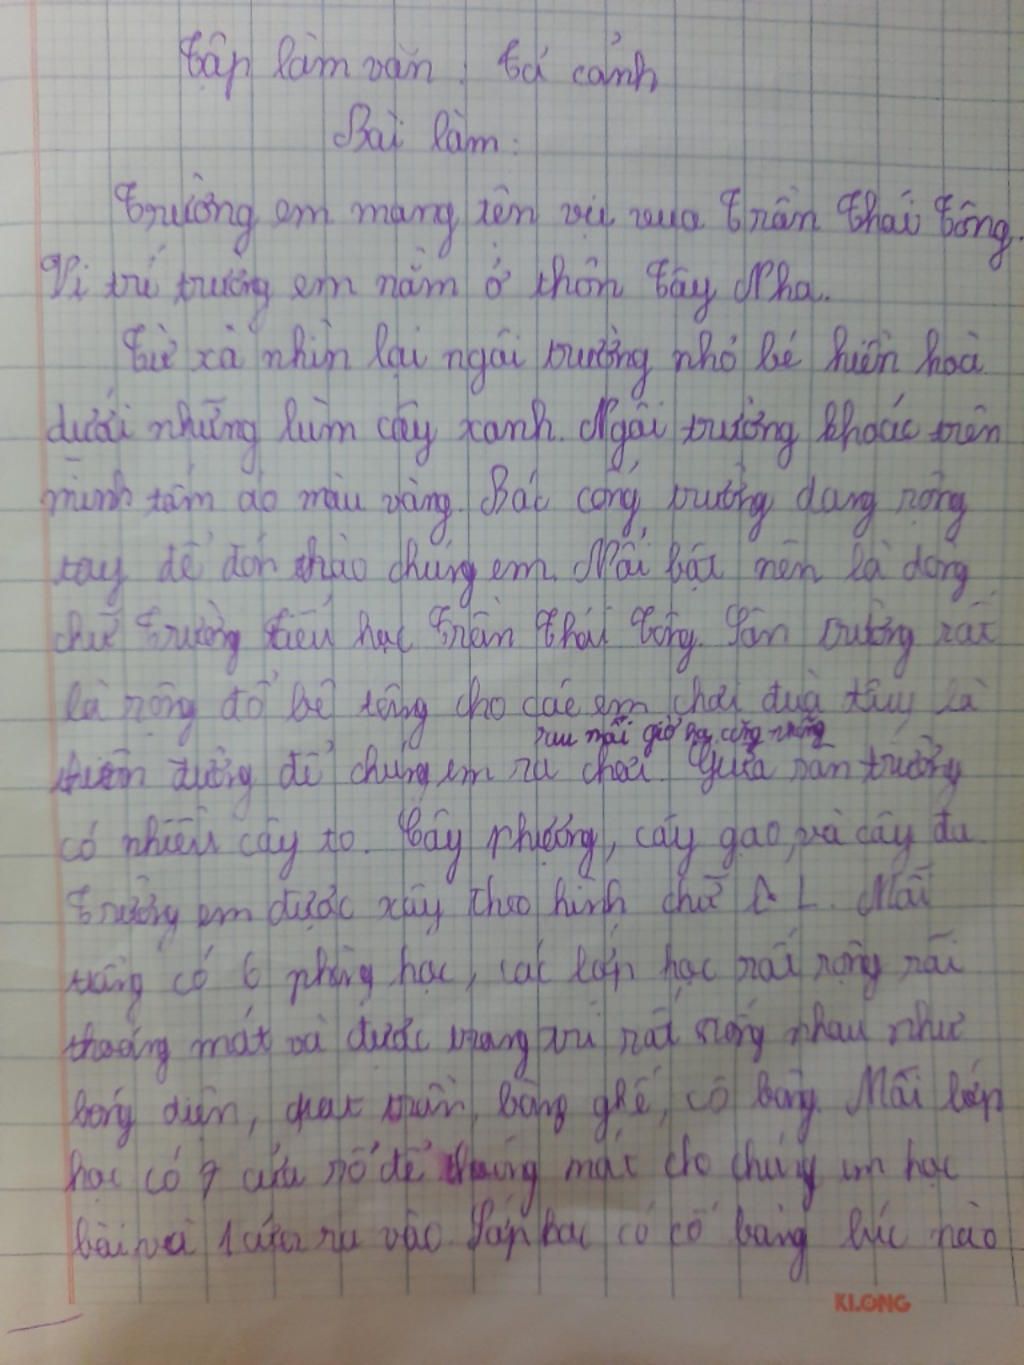 Tập làm văn: Tả cảnh
Bài làm:
Trường em mang tên vị vua Trần Thái Tông.
Vị trí trường em nằm ở thôn Tây Nha.
Từ xà nhìn lại ngôi trường nhỏ bé hiền hoà
dưới những lùm cây xanh. Ngôi trường khoác trên
mình tấm áo màu vàng. Bác cổng trường dang rộng
tay để đón chào chúng em. Nổi bật nên là dòng
chữ Trường tiểu học Trần Thái Tông. Sân trường rất
là rộng đổ bê tông cho các em chơi đùa
sau mỗi giờ học căng thẳng
thiên đường để chúng em ra chơi. Giữa sân trường
có nhiều cây to. Cây phượng, cây gạo, và cây đa.
Trường em được xây theo hình chữ L. Mỗi
tầng có 6 phòng học, các lớp học rất rộng rãi
thoáng mát và được trang trí rất giống nhau như
bóng điện, quạt trần, bàng ghế, có bảng. Mỗi lớp
học có 7 cửa sổ để thoáng mát cho chúng em học
bài và 1 cửa ra vào. Lớp học có cố bảng lúc nào
KLONG